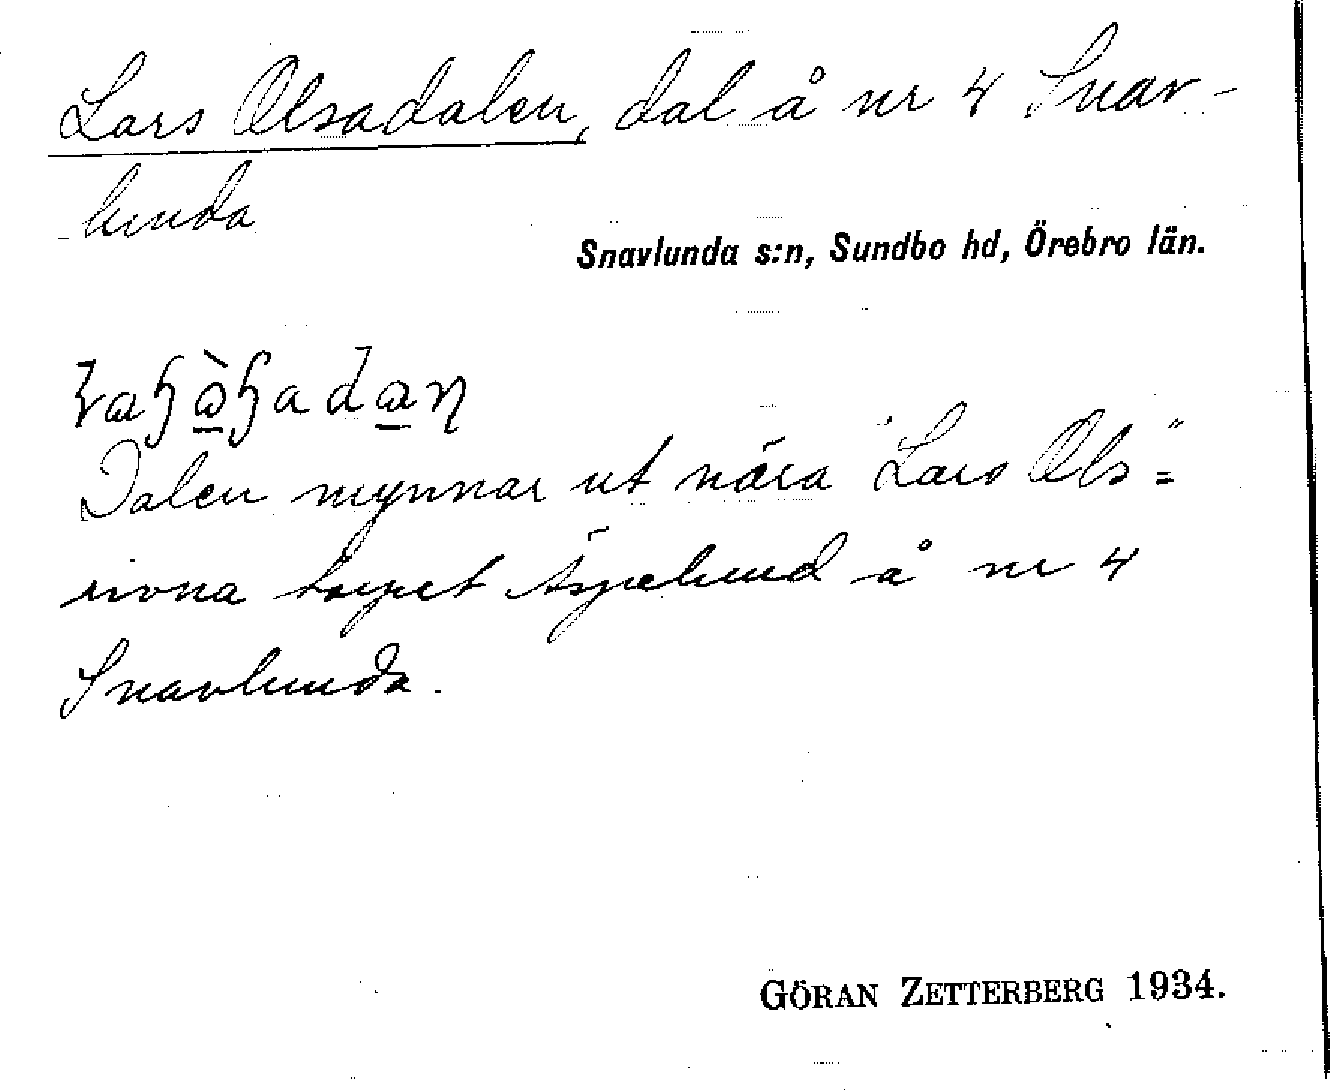 Lars Olsadalen, dal å nr 4 Snav-
lunda
Snavlunda s:n, Sundbo hd, Örebro län.
Dalen mynnar ut nära "Lars Ols"=
rivna torpet Äspelund å nr 4
Snavlunda.
GÖRAN ZETTERBERG 1934.